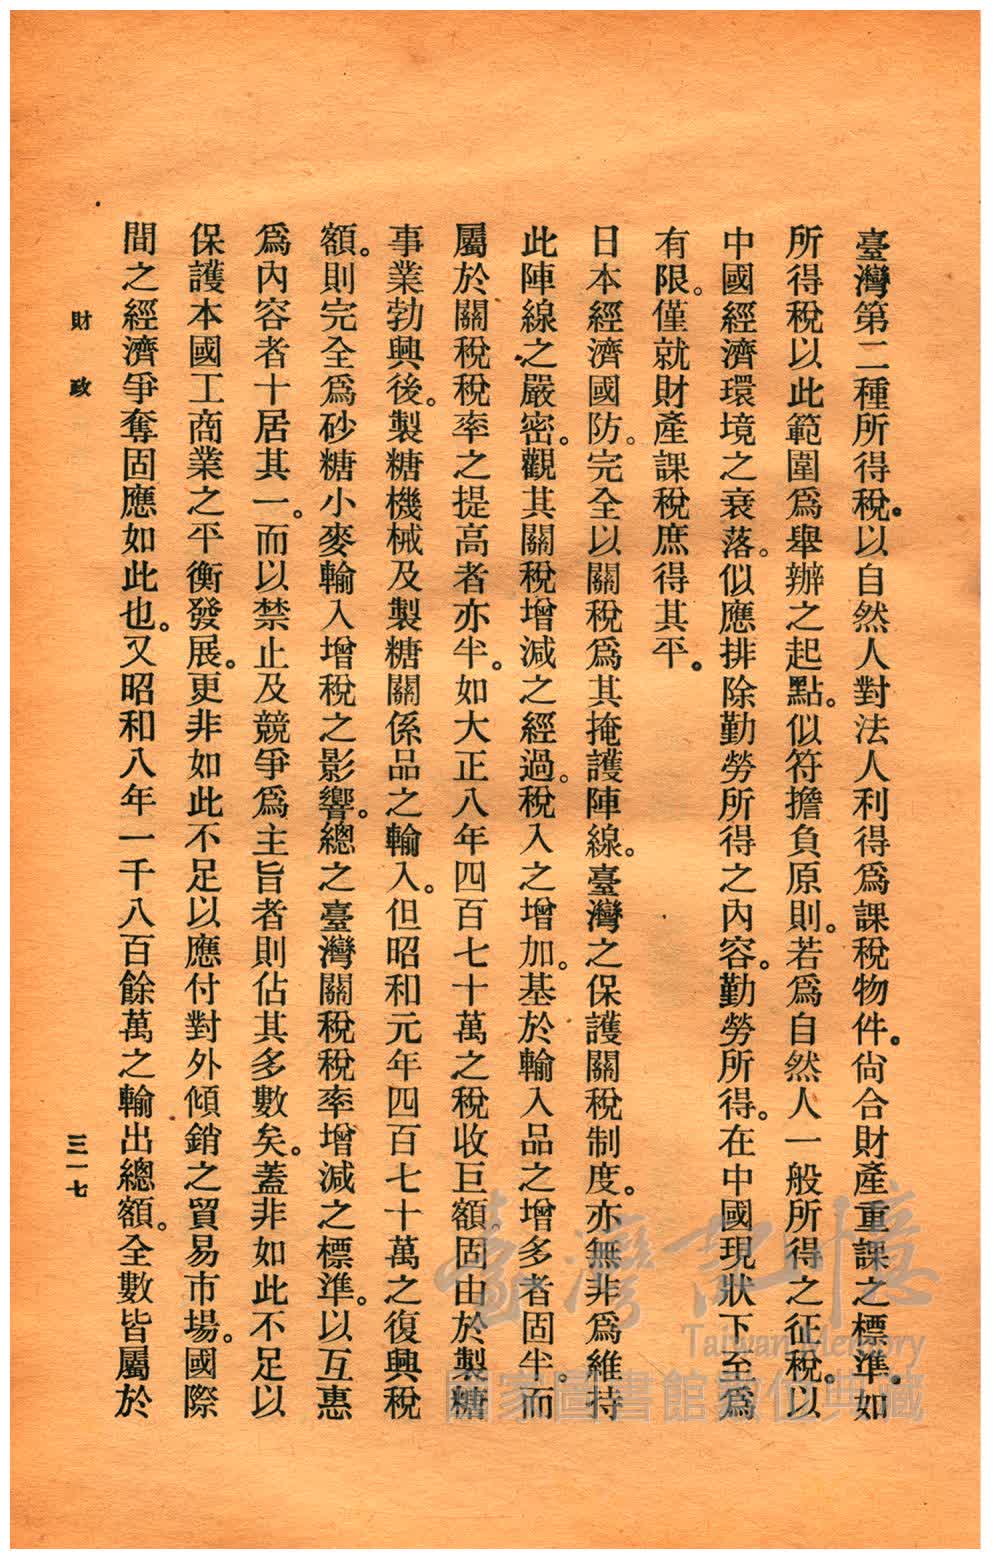 臺灣第二種所得稅。以自然人對法人利得爲課稅物件。尙合財產重課之標準。如
所得稅以此範圍爲舉辦之起點。似符擔負原則。若爲自然人一般所得之征稅。以
中國經濟環境之衰落。似應排除勤勞所得之內容。勤勞所得。在中國現狀下至爲
有限。僅就財產課稅庶得其平。
日本經濟國防。完全以關稅爲其掩護陣線。臺灣之保護關稅制度。亦無非爲維持
此陣線之嚴密。觀其關稅增減之經過。稅入之增加。基於輸入品之增多者固半。而
屬於關稅稅率之提高者亦半。如大正八年四百七十萬之稅收巨額。固由於製糖
事業勃興後。製糖機械及製糖關係品之輸入。但昭和元年四百七十萬之復興稅
額。則完全爲砂糖小麥輸入增稅之影響。總之臺灣關稅稅率增減之標準。以互惠
爲內容者十居其一。而以禁止及競爭爲主旨者則佔其多數矣。蓋非如此不足以
保護本國工商業之平衡發展。更非如此不足以應付對外傾銷之貿易市場。國際
間之經濟爭奪固應如此也。又昭和八年一千八百餘萬之輸出總額。全數皆屬於
財政
三一七
臺灣記憶
Taiwan Memory
國家圖書館數位典藏